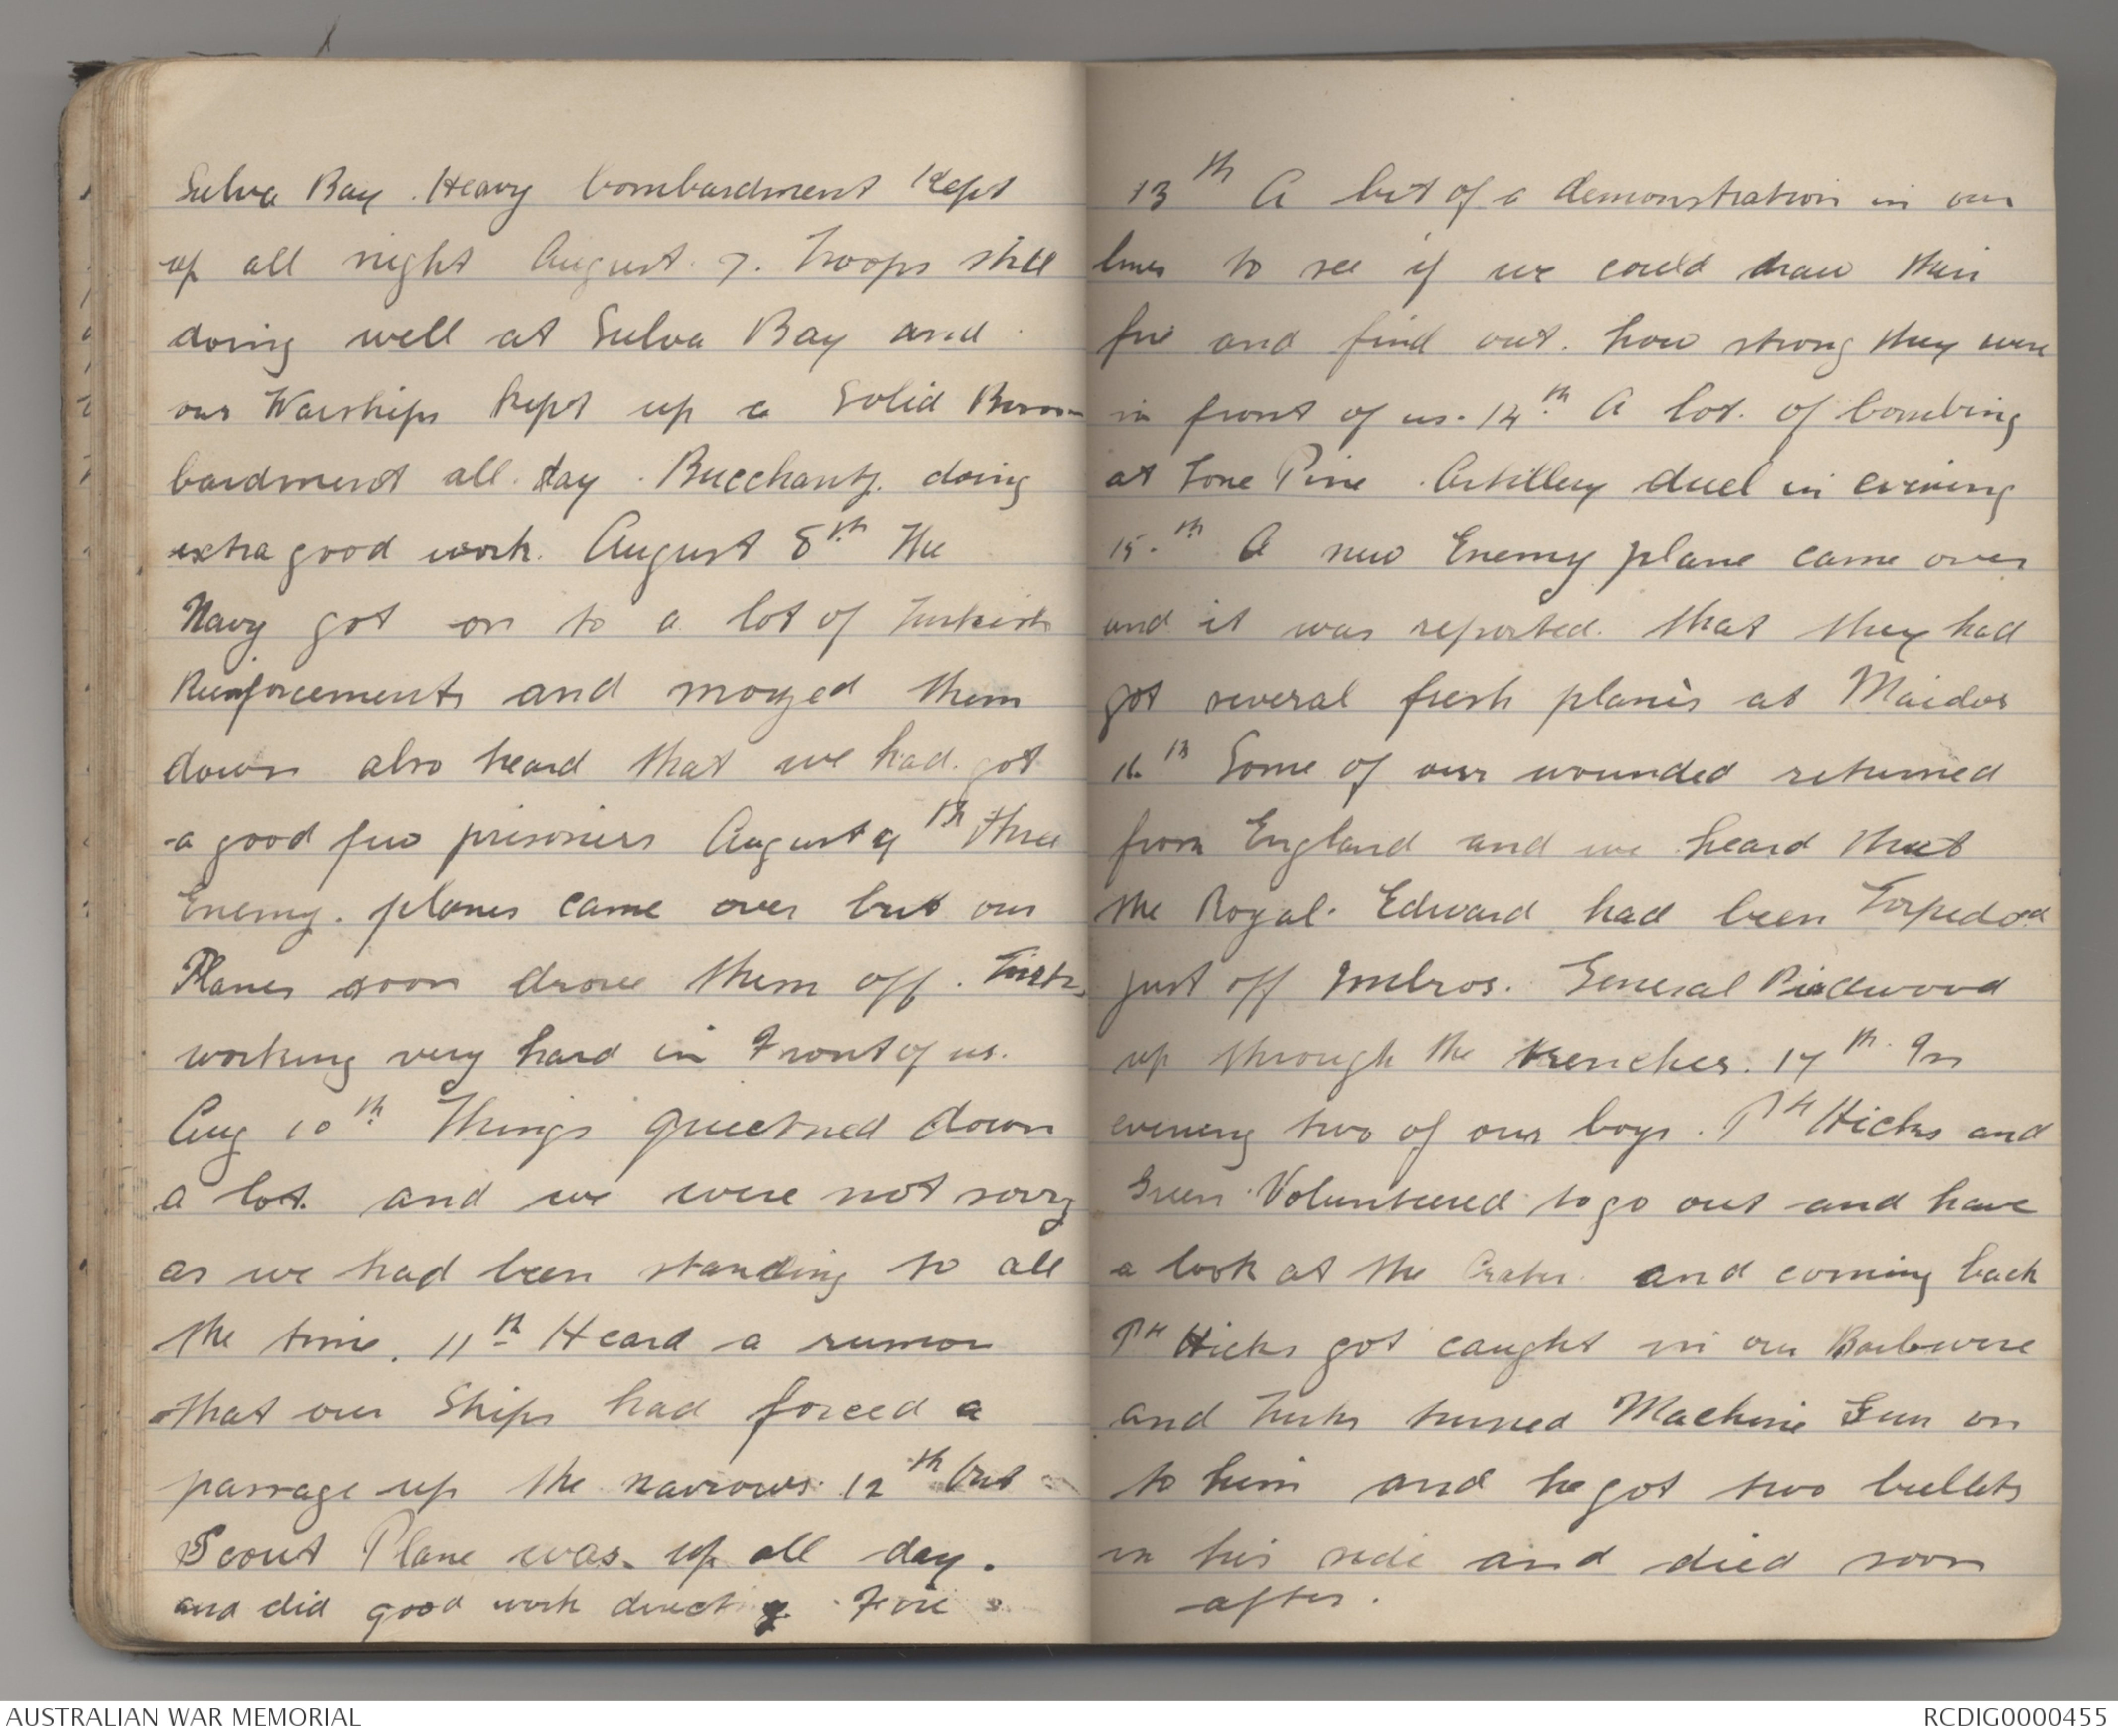 Sulva Bay. Heavy bombardment kept
up all night August. 7. Troops still
doing well at Sulva Bay and
our Warships kept up a Solid Bom
bardment all day. Bucchants. doing
extra good work. August 8th The
Navy got on to a lot of Turkish
Reinforcements and mowed them
down also heard that we had got
a good few prisoners August 9th three
Enemy. planes came over but our
Planes soon drove them off. Turks
working very hard in Front of us.
Aug 10th Things quietned down
a lot. and we were not sorry
as we had been standing to all
the time. 11th Heard a rumor
that our Ships had forced a
passage up the narrows. 12th Our
Scout Plane was up all day.
and did good work directing Fire
13th A bit of a demonstration in our
lines to see if we could draw their
fire and find out. how strong they were
in front of us. 14th A lot. of bombing
at Lone Pine. Artillery duel in evening
15th A new Enemy plane came over
and it was reported. that they had
got several fresh planes at Maidos
16th Some of our wounded returned
from England and we heard that
the Royal. Edward had been Torpedoed
just off Imbros. General Birdwood
up through the trenches. 17th In
evening two of our boys. Pte Hicks and
Green Volunteered to go out and have
a look at the Crater. and coming back
Pte Hicks got caught in our Barbwire
and Turks turned Machine Gun on
to him and he got two bullets
in his side and died soon
after.
AUSTRALIAN WAR MEMORIAL
RCDIG0000455